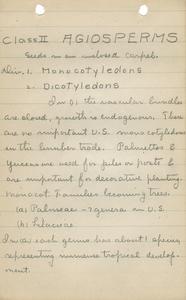 Class II AGIOSPERMS
Seeds in an inclosed carpel.
Div. 1. Monocotyledons
2. Dicotyledons
In (1) the vascular bundles
are closed, growth is endogenous. There
are no important U.S. monocotyledons
in the lumber trade. Palmettos &
Yuccas are used for piles or posts &
are important for decorative planting.
Monocot. Families becoming trees.
(a) Palmeae - 7 genera in U.S.
(b) Liliaceae
In (a) each genus has about 1 species,
representing immense tropical develop-
ment.